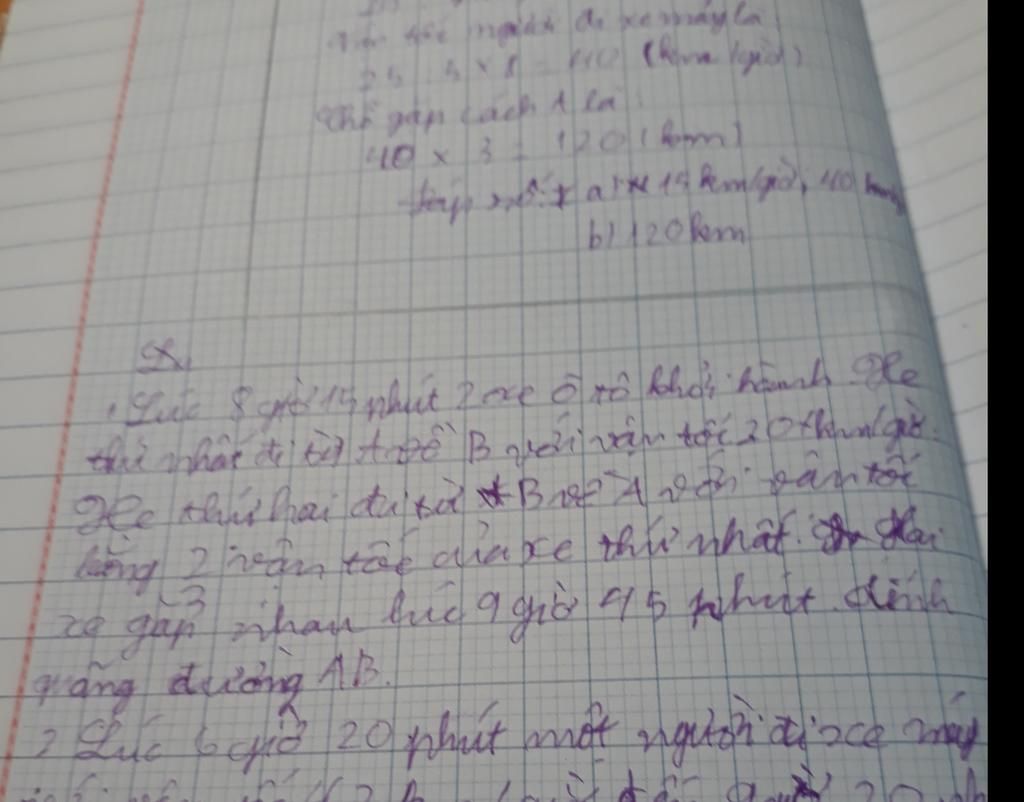 người đi xe máy là
5 × 8 = 40 (km/giờ)
Chỗ gặp cách A là
40 × 3 = 120 (km)
Đáp số: a) 15 km/giờ, 40 km
b) 120 km
1. Lúc 8 giờ 15 phút 2 xe ô tô khởi hành. Xe
thứ nhất đi từ A về B với vận tốc 20 km/giờ.
Xe thứ hai đi từ B về A với vận tốc
bằng 2/3 vận tốc của xe thứ nhất. Hai
xe gặp nhau lúc 9 giờ 45 phút. Tính
quãng đường AB.
2 Lúc 6 giờ 20 phút một người đi xe máy